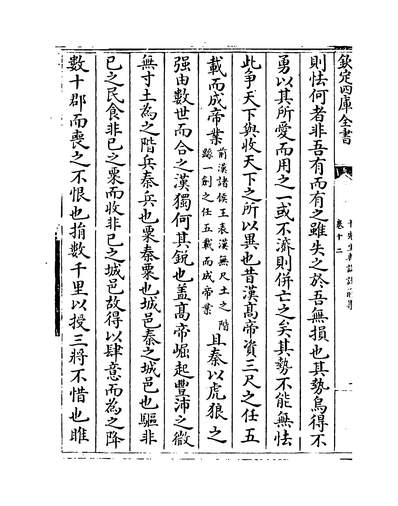 欽定四庫全書
卷十二
則怯何者非吾有而有之雖失之於吾無損也其勢烏得不
勇以其所愛而用之一或不濟則併亡之矣其勢不能無怯
此爭天下與收天下之所以異也昔漢髙帝資三尺之任五
載而成帝業前漢諸侯王表漢無尺土之階繇一劍之任五載而成帝業且秦以虎狼之
强由數世而合之漢獨何其銳也盖髙帝崛起豐沛之微
無寸土為之階兵秦兵也粟秦粟也城邑秦之城邑也驅非
已之民食非已之粟而收非已之城邑故得以肆意而為之降
數十郡而喪之不恨也捐數千里以授三將不惜也睢